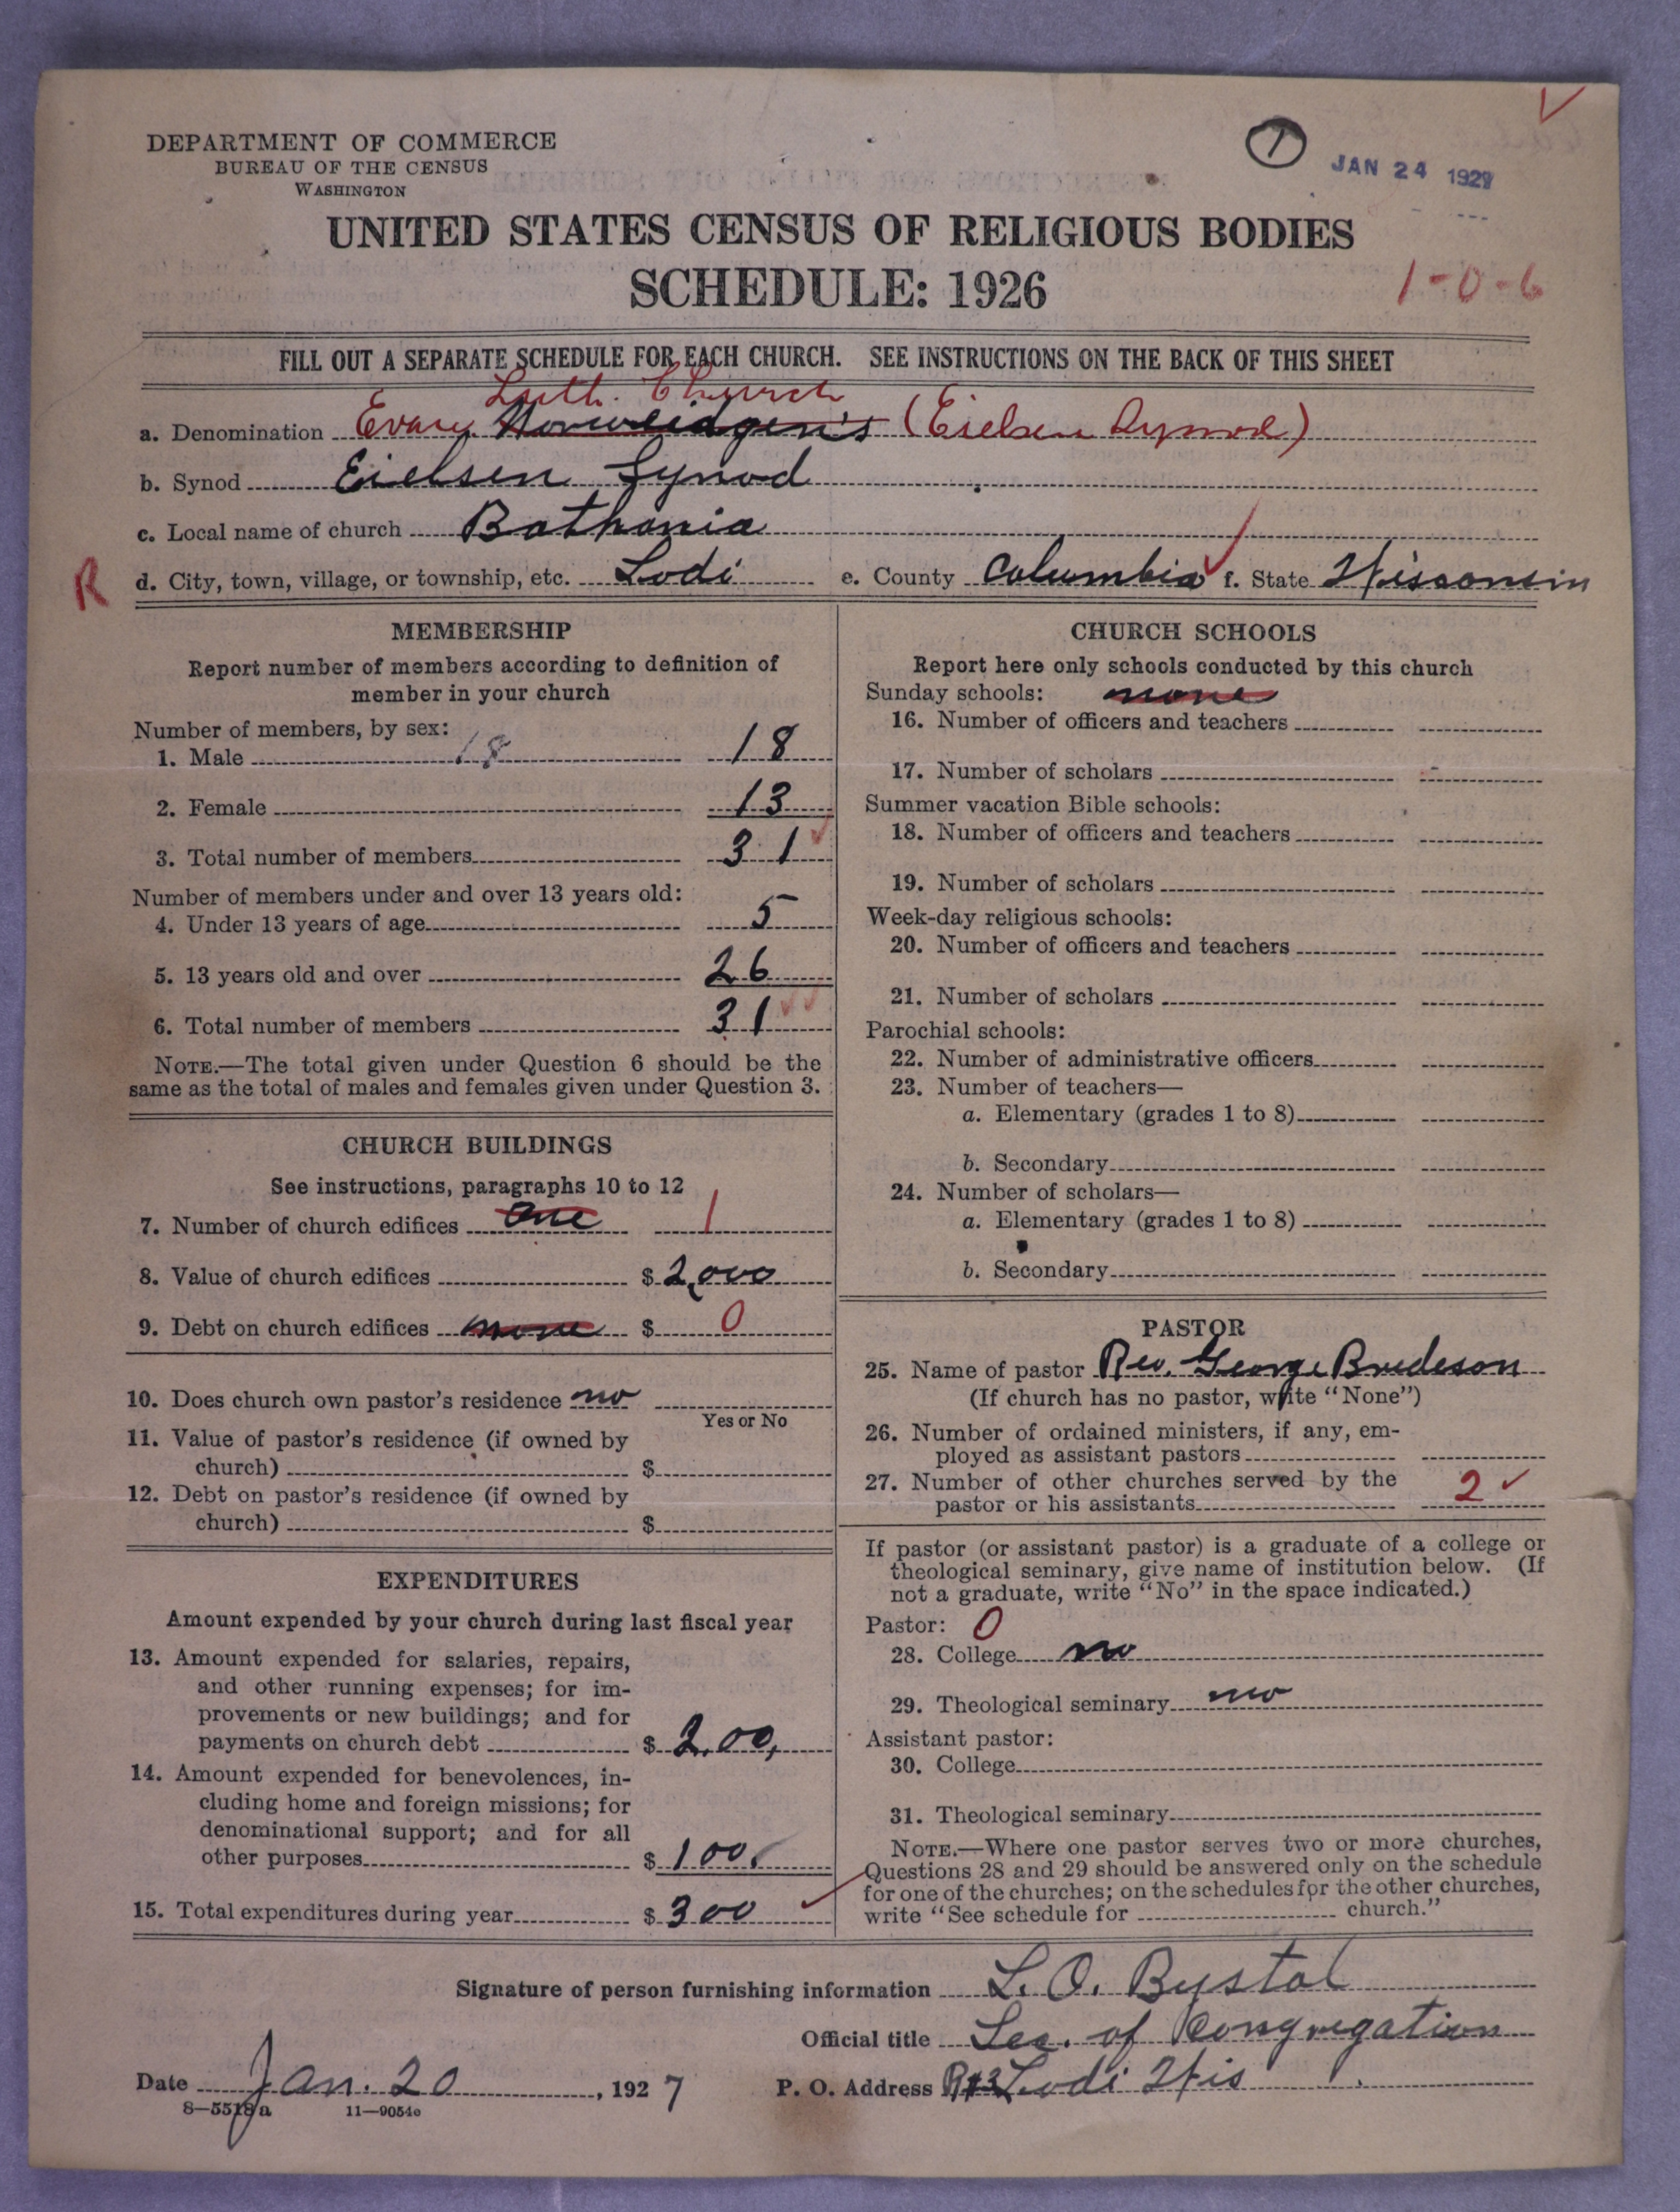 DEPARTMENT OF COMMERCE
BUREAU OF THE CENSUS
WASHINGTON
1
JAN 24 1927
UNITED STATES CENSUS OF RELIGIOUS BODIES
SCHEDULE: 1926
1-0-6
FILL OUT A SEPARATE SCHEDULE FOR EACH CHURCH. SEE INSTRUCTIONS ON THE BACK OF THIS SHEET
Luth. Church
a. Denomination Evang. Norweidgen's (Eielsen Synod)
b. Synod Eielsen Synod
c. Local name of church Bathania
R d. City, town, village, or township, etc. Lodi e. County Columbia f. State Wisconsin
MEMBERSHIP
Report number of members according to definition of
member in your church
Number of members, by sex:
1. Male 18 18
2. Female 13
3. Total number of members 31
Number of members under and over 13 years old:
4. Under 13 years of age 5
5. 13 years old and over 26
6. Total number of members 31
NOTE.—The total given under Question 6 should be the
same as the total of males and females given under Question 3.
CHURCH BUILDINGS
See instructions, paragraphs 10 to 12
7. Number of church edifices One 1
8. Value of church edifices $ 2,000
9. Debt on church edifices none $ 0
10. Does church own pastor's residence no
Yes or No
11. Value of pastor's residence (if owned by
church) $
12. Debt on pastor's residence (if owned by
church) $
EXPENDITURES
Amount expended by your church during last fiscal year
13. Amount expended for salaries, repairs,
and other running expenses; for im-
provements or new buildings; and for
payments on church debt $ 2,00,
14. Amount expended for benevolences, in-
cluding home and foreign missions; for
denominational support; and for all
other purposes $ 100,
15. Total expenditures during year $ 300
CHURCH SCHOOLS
Report here only schools conducted by this church
Sunday schools: none
16. Number of officers and teachers
17. Number of scholars
Summer vacation Bible schools:
18. Number of officers and teachers
19. Number of scholars
Week-day religious schools:
20. Number of officers and teachers
21. Number of scholars
Parochial schools:
22. Number of administrative officers
23. Number of teachers—
a. Elementary (grades 1 to 8)
b. Secondary
24. Number of scholars—
a. Elementary (grades 1 to 8)
b. Secondary
PASTOR
25. Name of pastor Rev. George Bredeson
(If church has no pastor, write "None")
26. Number of ordained ministers, if any, em-
ployed as assistant pastors
27. Number of other churches served by the
pastor or his assistants 2
If pastor (or assistant pastor) is a graduate of a college or
theological seminary, give name of institution below. (If
not a graduate, write "No" in the space indicated.)
Pastor: 0
28. College no
29. Theological seminary no
Assistant pastor:
30. College
31. Theological seminary
NOTE.—Where one pastor serves two or more churches,
Questions 28 and 29 should be answered only on the schedule
for one of the churches; on the schedules for the other churches,
write "See schedule for church."
Signature of person furnishing information L. O. Bystol
Official title Sec. of Congregation
Date Jan. 20, 1927 P. O. Address Lodi Wis
8—5518a 11—9054e